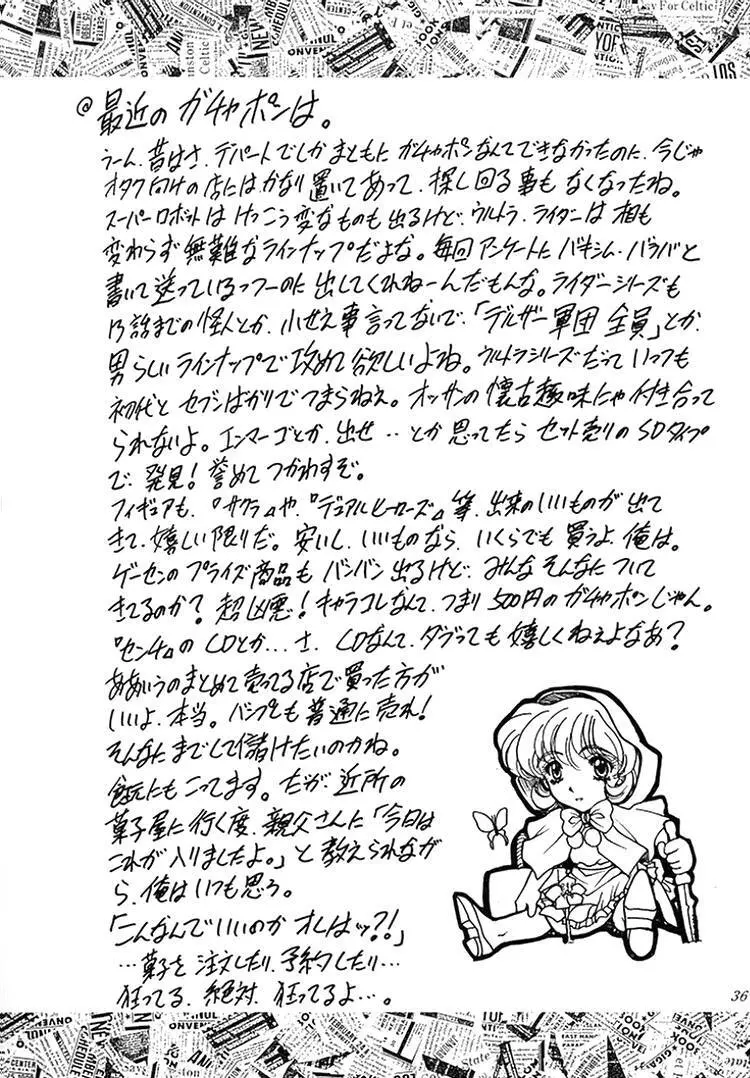 @最近のガチャポンは。
うーん、昔はさ、デパートでしかまともにガチャポンなんてできなかったのに、今じゃ
オタク向けの店にはかなり置いてあって、探し回る事もなくなったね。
スーパーロボットはけっこう変なものも出るけど、ウルトラ、ライダーは相も
変わらず無難なラインナップだよな。毎回アンケートにバキシム・バラバと
書いて送っているっつーのに出してくれねーんだもんな。ライダーシリーズも
13話までの怪人とか、小せえ事言ってないで、「デルザー軍団全員」とか、
男らしいラインナップで攻めて欲しいよね。ウルトラシリーズだっていっつも
初代とセブンばかりでつまらねえ。オッサンの懐古趣味にゃ付き合って
られないよ。エンマーゴとか、出せ‥とか思ってたらセット売りのSDタイプ
で、発見!誉めてつかわすぞ。
フィギュアも、『サクラ』や、『デュアルヒーローズ』等、出来のいいものが出て
きて、嬉しい限りだ。安いし、いいものなら、いくらでも買うよ、俺は。
ゲーセンのプライズ商品もバンバン出るけど、みんなそんなについて
きてるのか?超凶悪!キャラコレなんて、つまり500円のガチャポンじゃん。
『センチ』のCDとか...さ、CDなんて、ダブっても嬉しくねえよなあ?
ああいうのまとめて売ってる店で買った方が
いいよ、本当。バンプレも普通に売れ!
そんなにまでして儲けたいのかね。
食玩にもこってます。だが、近所の
菓子屋に行く度、親父さんに「今日は
これが入りましたよ。」と教えられなが
ら、俺はいつも思う。
「こんなんでいいのかオレはッ?!」
…菓子を注文したり、予約したり…
狂ってる、絶対、狂ってるよ…。
36